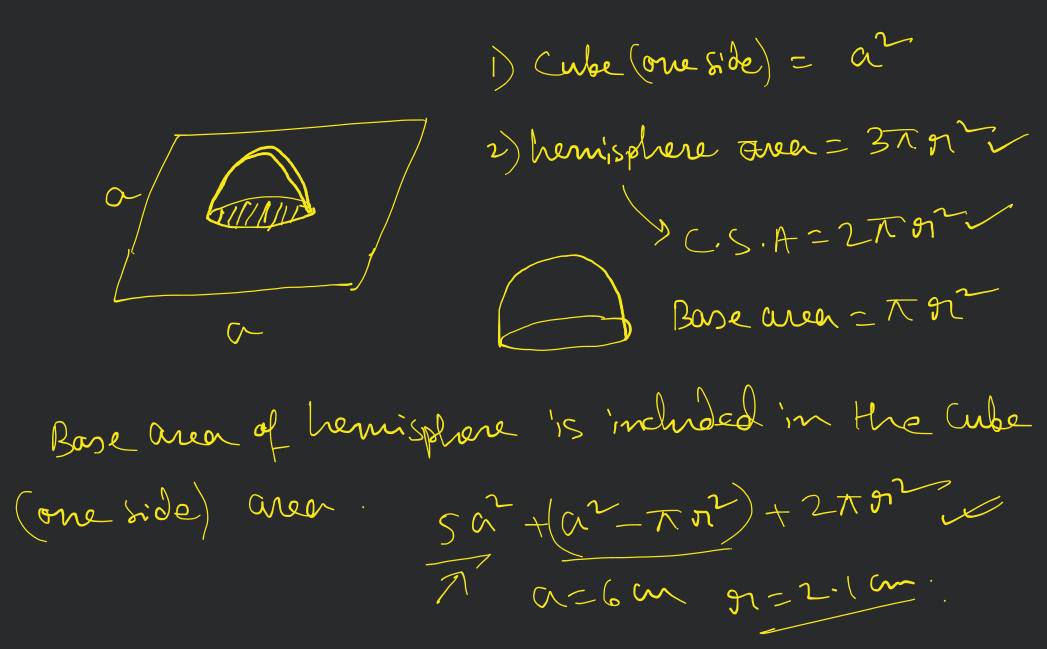 1) Cube (one side) = a²
2) hemisphere area = 3πr² ✓
→ C.S.A = 2πr² ✓
Base area = πr²
a
a
Base area of hemisphere is included in the Cube
(one side) area.
5a² + (a² - πr²) + 2πr² ✓
a = 6 cm r = 2.1 cm.